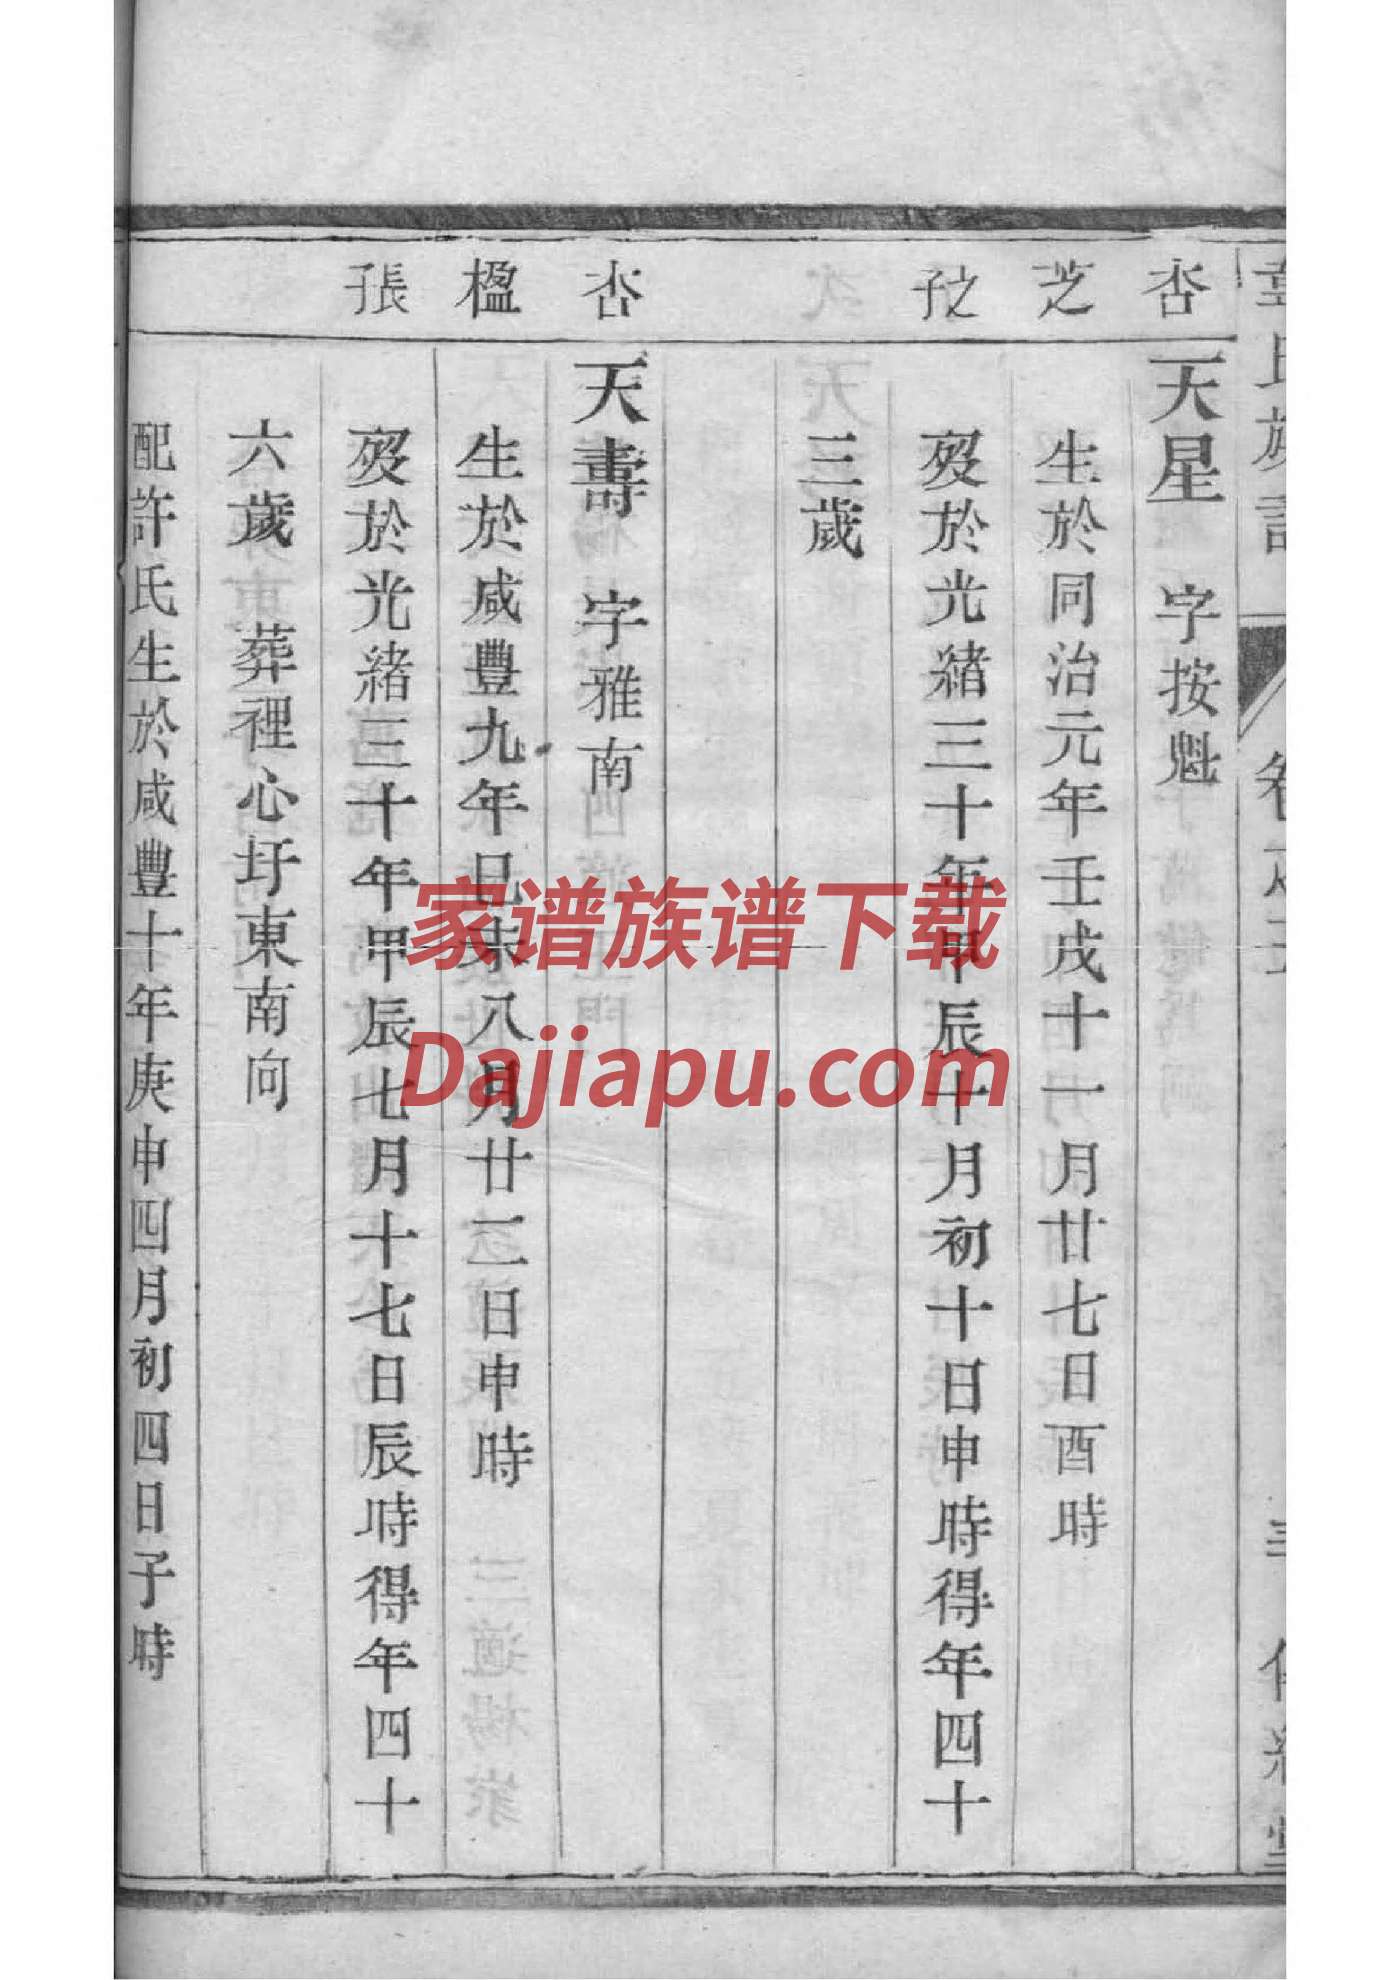 杏 天星 字按魁
芝 生於同治元年壬戌十一月廿七日酉時
孜 歿於光緒三十年甲辰十月初十日申時得年四十
三歲
杏 天壽 字雅南
楹 生於咸豐九年己未八月廿二日申時
張 歿於光緒三十年甲辰七月十七日辰時得年四十
六歲 葬裡心圩東南向
配許氏生於咸豐十年庚申四月初四日子時
家谱族谱下载
Dajiapu.com